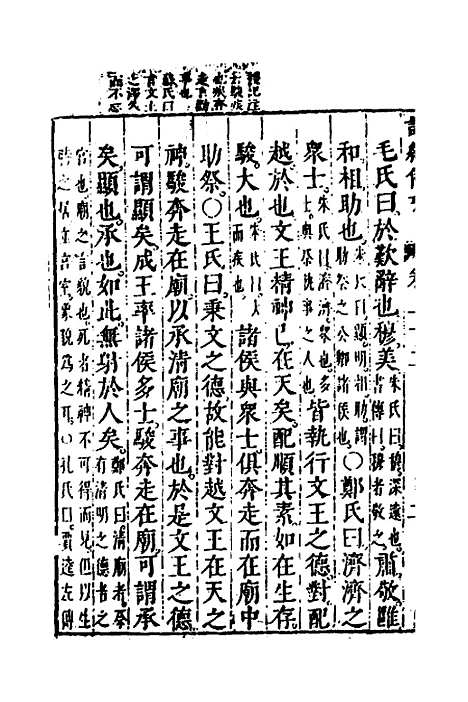 毛氏曰於歎辭也穆美朱氏曰穆深遠也書傳曰穆者敬之肅敬雝
和相助也朱氏曰顯明相助謂助祭之公卿諸侯也○鄭氏曰濟濟之
衆士朱氏曰濟濟衆也多士與祭執事之人也皆執行文王之德對配
越於也文王精神已在天矣配順其素如在生存
駿大也朱氏曰大而疾也諸侯與衆士俱奔走而在廟中
助祭○王氏曰秉文之德故能對越文王在天之
神駿奔走在廟以承清廟之事也於是文王之德
可謂顯矣成王率諸侯多士駿奔走在廟可謂承
矣顯也承也如此無射於人矣鄭氏曰清廟者祭有清明之德者之
宮也廟之言貌也死者精神不可得而見但以生時之居立宮室象貌為之耳○孔氏曰賈逵左傳